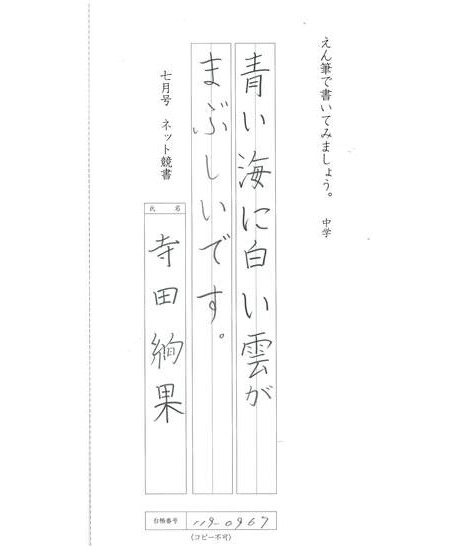 えん筆で書いてみましょう。 中学
青い海に白い雲が
まぶしいです。
七月号 ネット競書
氏 名
寺田絢果
台帳番号 119-0967
(コピー不可)